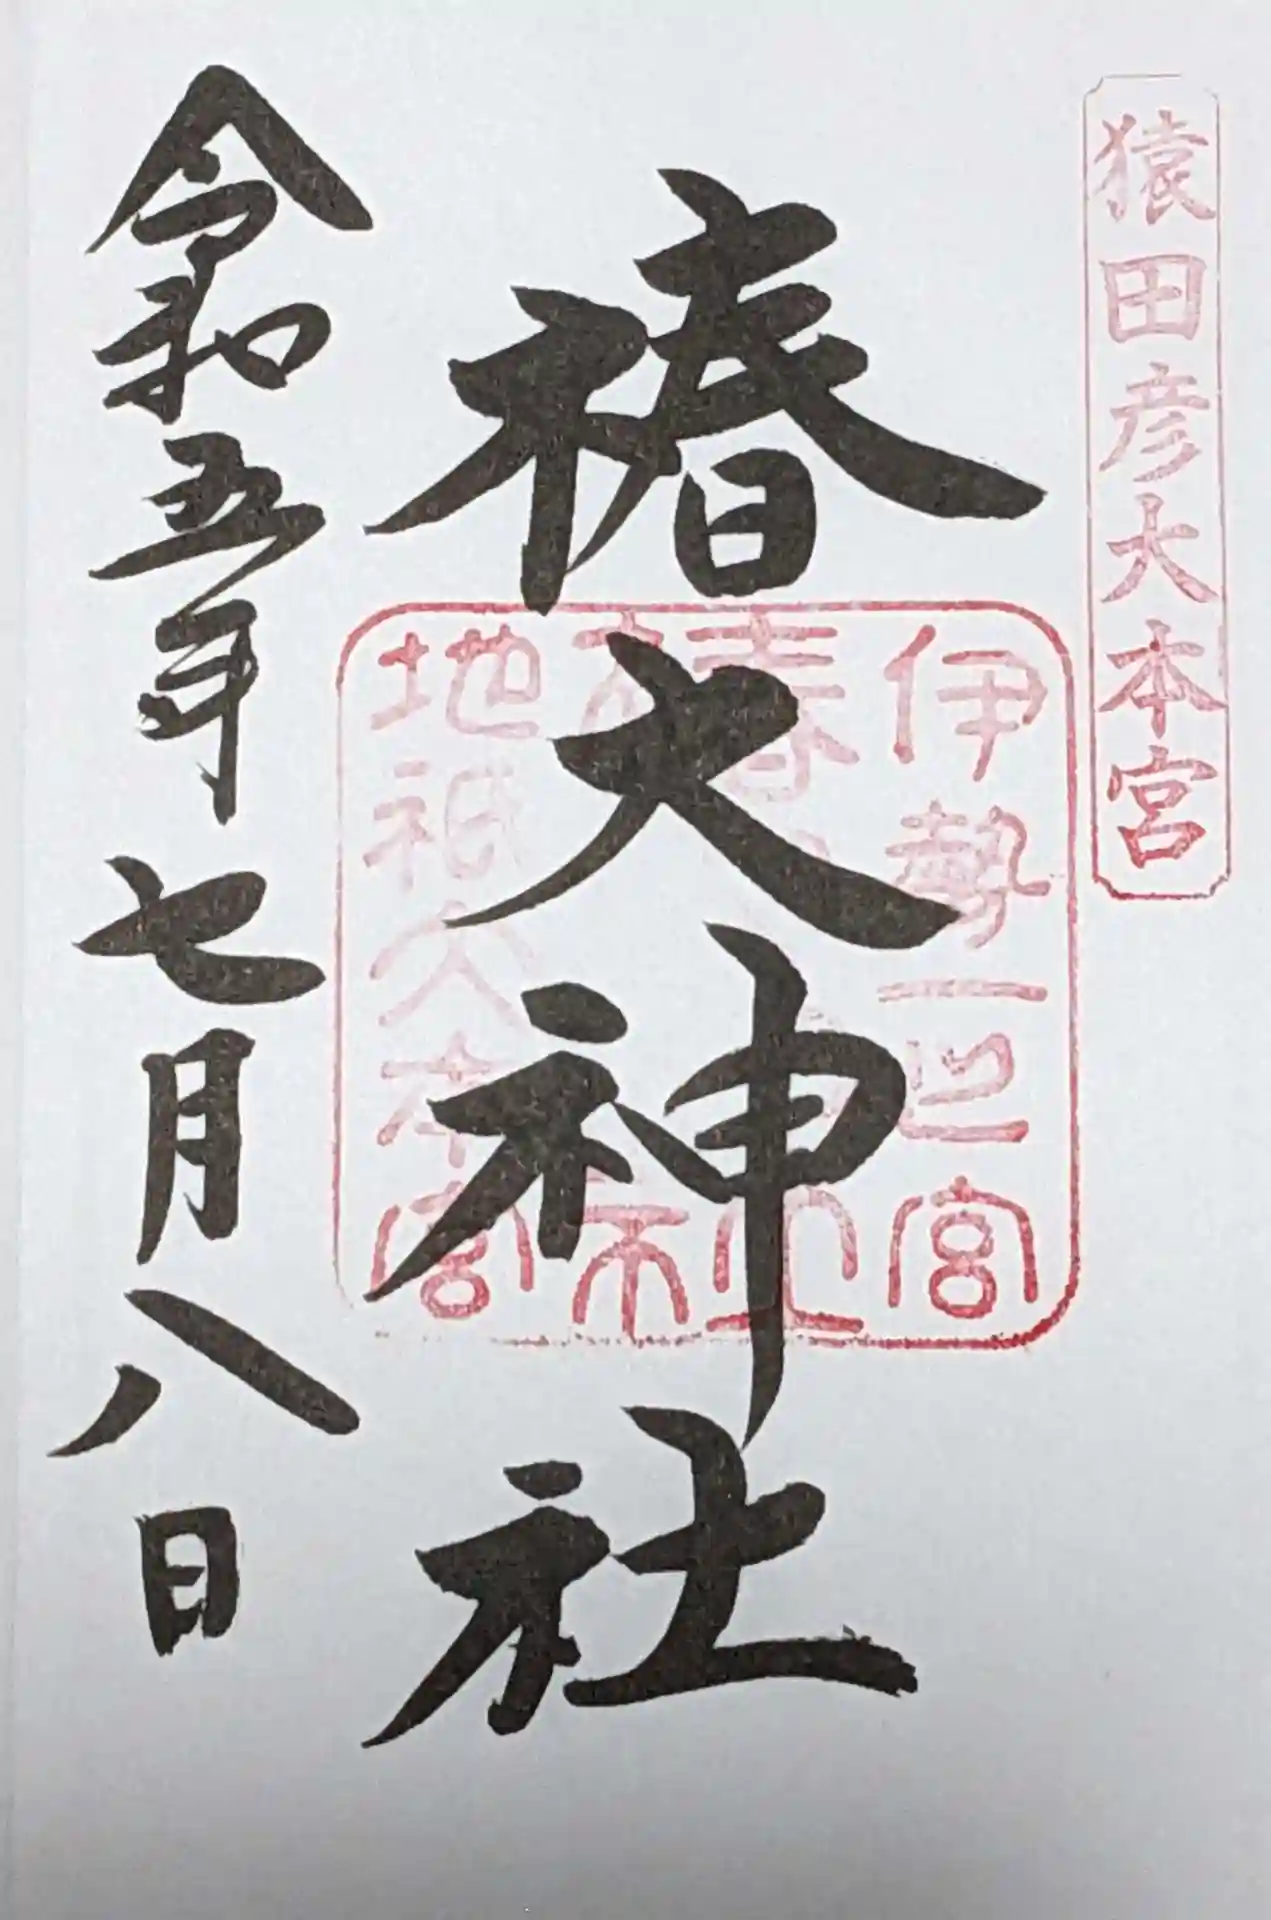 猿田彦大本宮
椿大神社
伊勢一之宮
地祇大本宮
令和五年七月八日